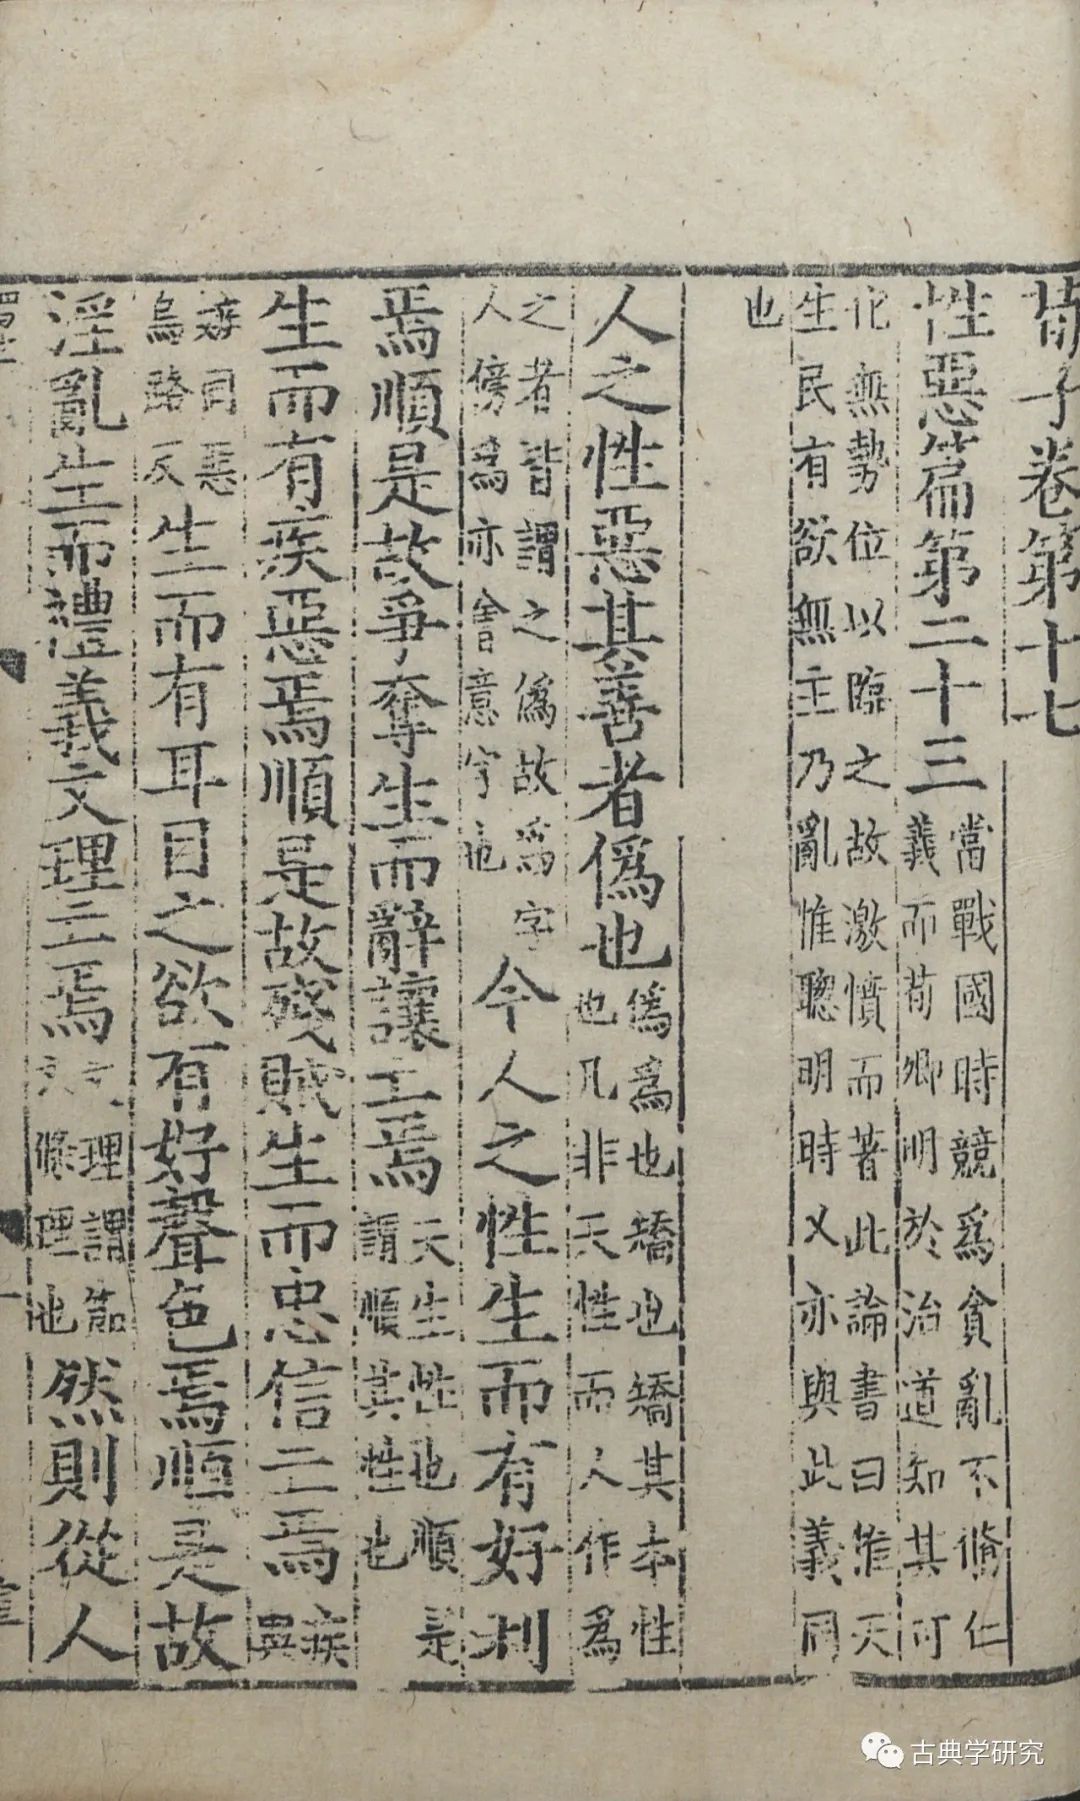 荀子卷第十七
性惡篇第二十三當戰國時競爲貪亂不脩仁義而荀卿明於治道知其可
化無勢位以臨之故激憤而著此論書曰惟天生民有欲無主乃亂惟聰明時乂亦與此義同
也
人之性惡其善者僞也僞爲也矯也矯其本性也凡非天性而人作爲
之者皆謂之僞故爲字人傍爲亦會意字也今人之性生而有好利
焉順是故爭奪生而辭讓亡焉天生性也順是謂順其性也
生而有疾惡焉順是故殘賊生而忠信亡焉疾與
嫉同惡烏路反生而有耳目之欲有好聲色焉順是故
淫亂生而禮義文理亡焉文理謂節文條理也然則從人
古典学研究